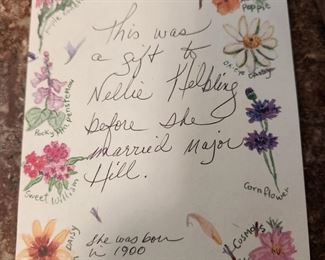 Poppie
This was
a gift to
Nellie Helbling
before she
married Major
Hill.
she was born
in 1900
Rocky Mt. Penstemon
Oxeye Daisy
Sweet William
Cornflower
Daisy
Cosmos